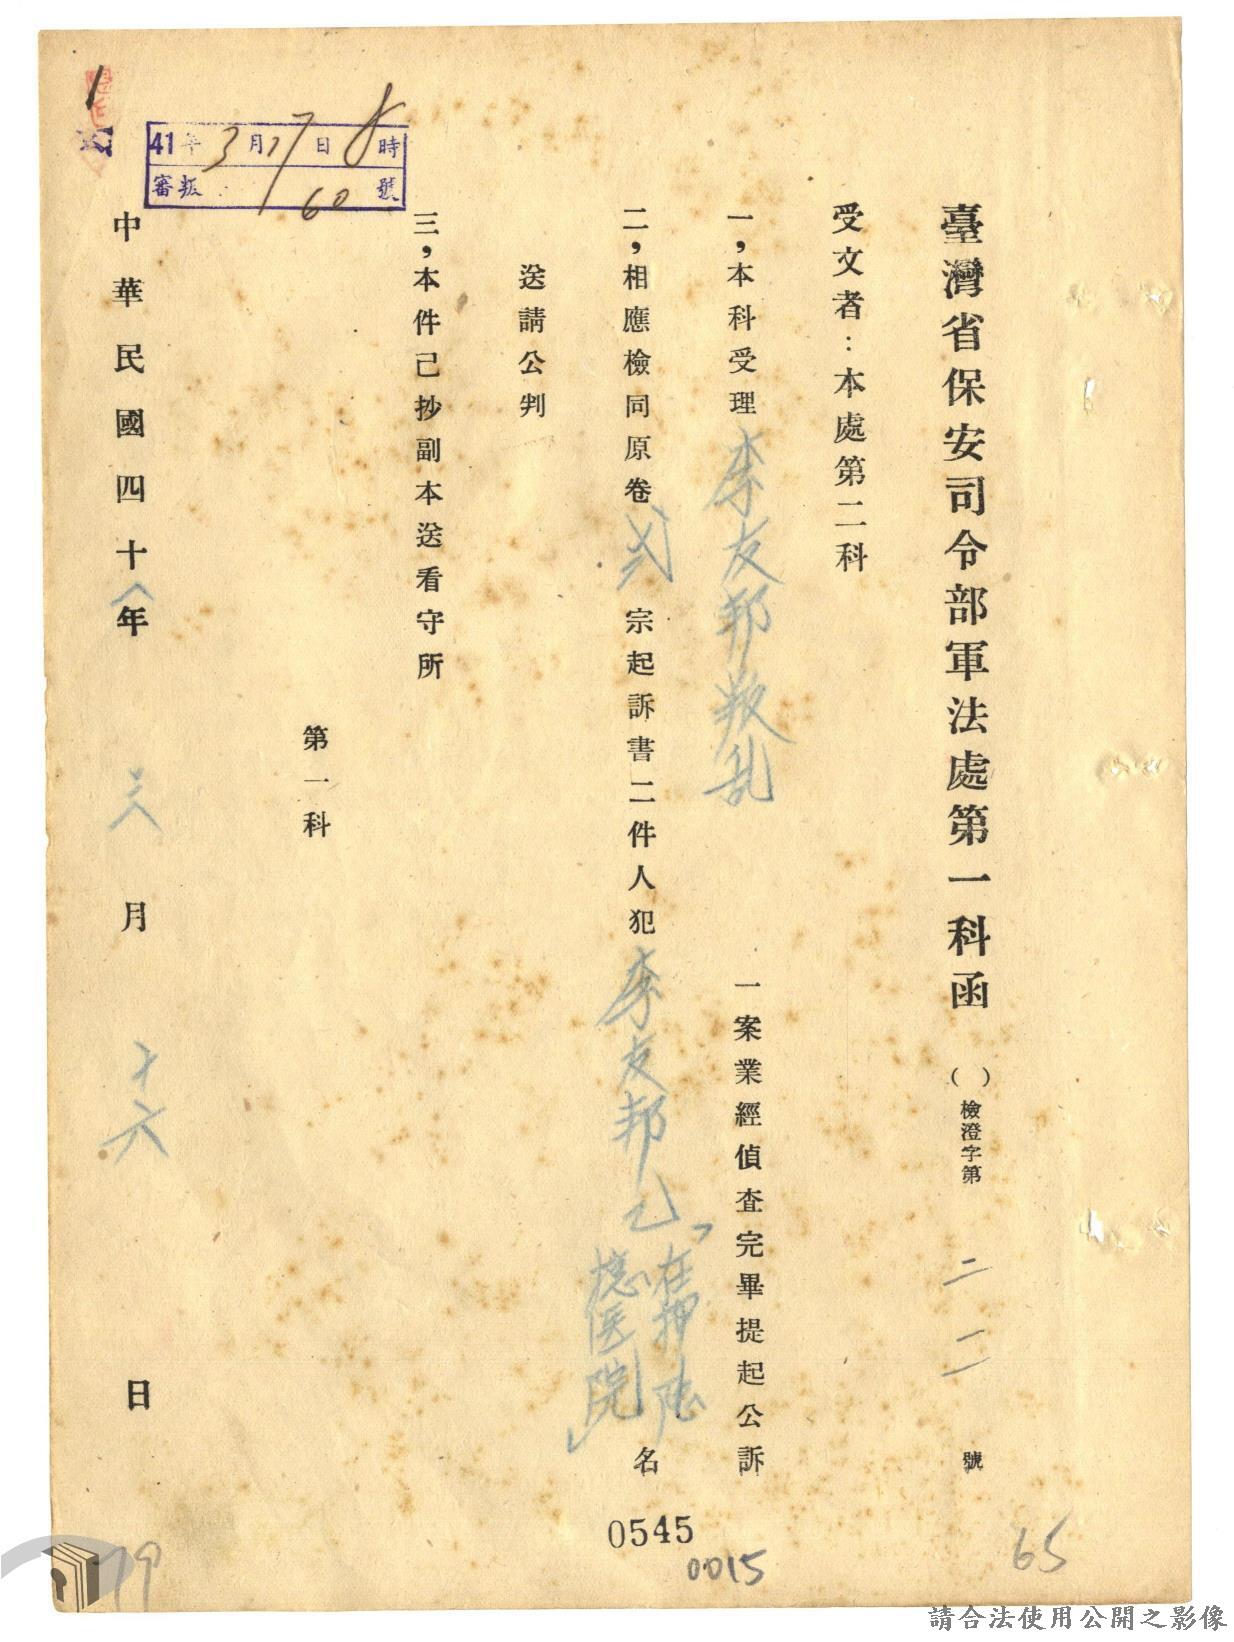 臺灣省保安司令部軍法處第一科函 ( ) 檢澄字第 二一一 號
受文者：本處第二科
一，本科受理李友邦叛乱一案業經偵查完畢提起公訴
二，相應檢同原卷弍宗起訴書二件人犯李友邦乙「在押陸總医院」名
送請公判
三，本件已抄副本送看守所
第一科
中華民國四十一年 三 月 十六 日
41年3月17日8時
審叛 60號
0545
0015
65
79
1
請合法使用公開之影像